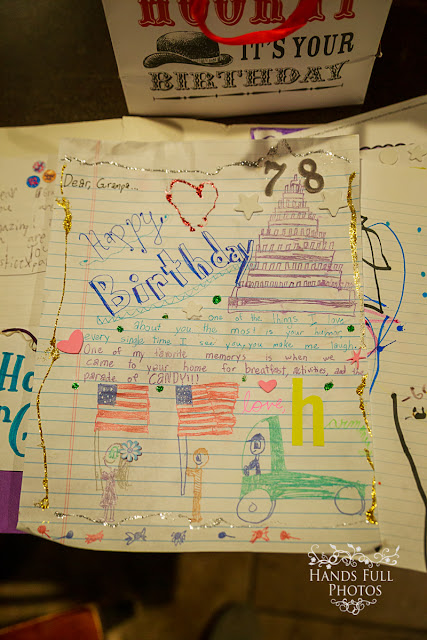 IT'S YOUR
BIRTHDAY
78
Dear, Granpa..
Happy
Birthday
one of the things I love
about you the most is your humor,
every single time I see you, you make me laugh.
One of my favorite memorys is when we
came to your home for breatfast, activities, and the
parade of CANDY!!!
love
h
HANDS FULL
PHOTOS